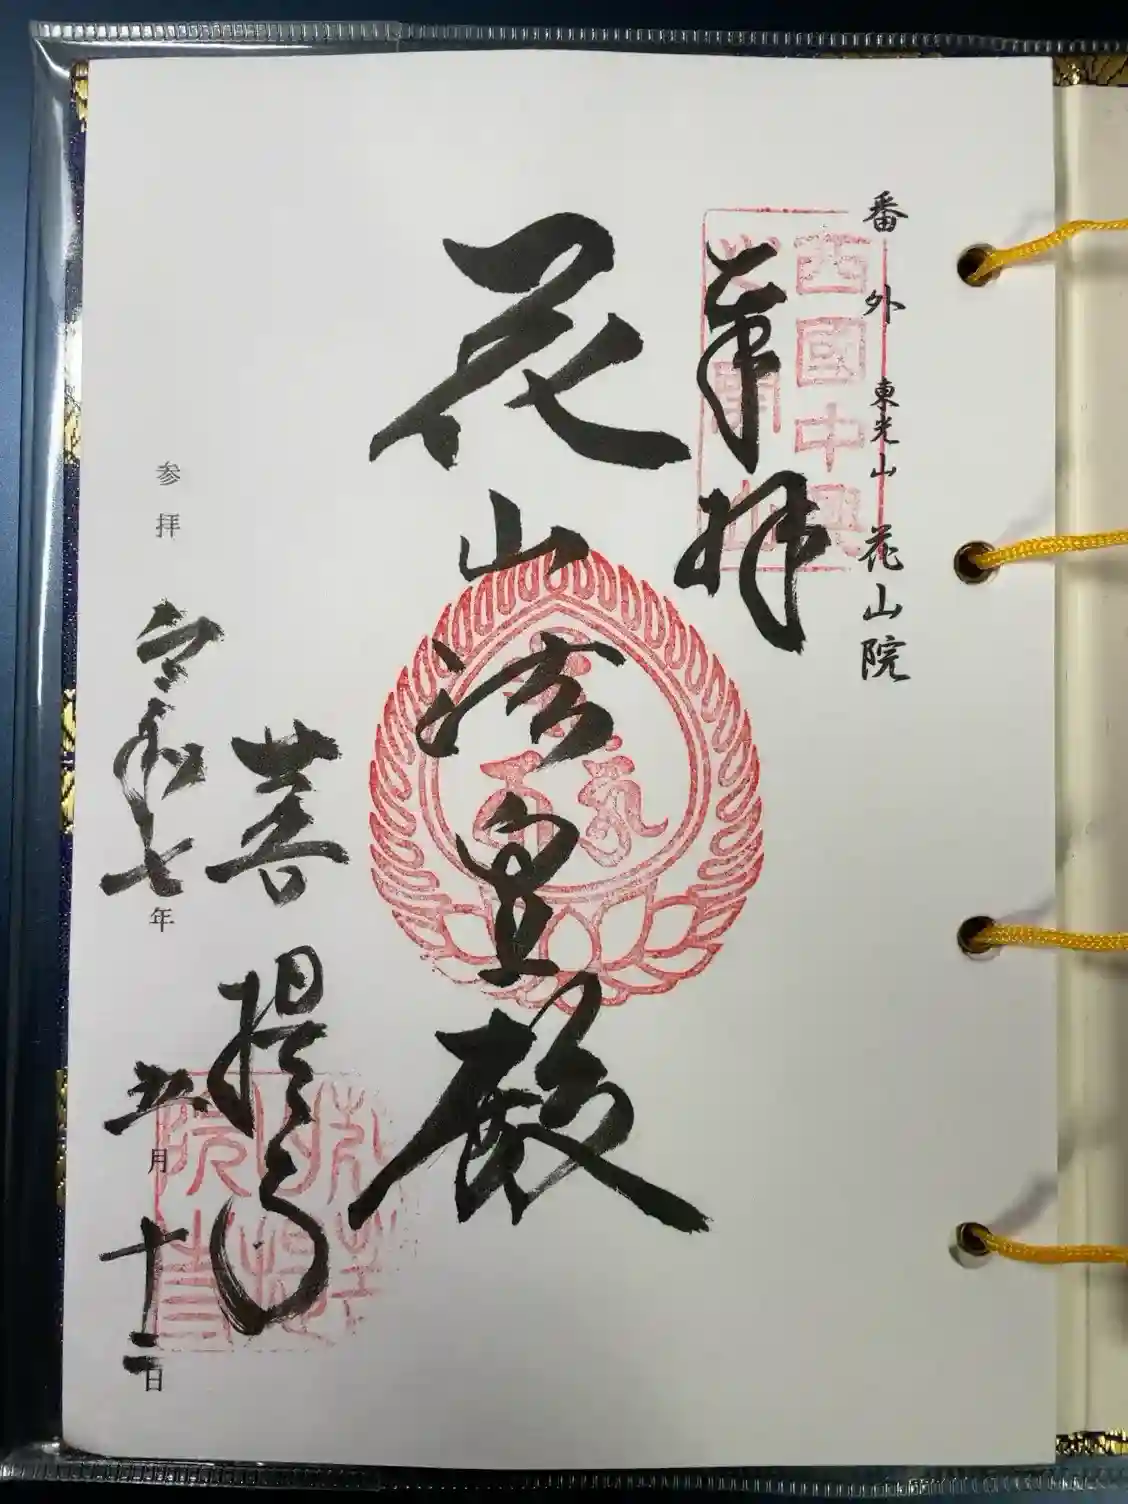 番外 東光山 花山院
西國中興
奉拝
花山法皇殿
菩提寺
参拝 令和七年 五月十二日